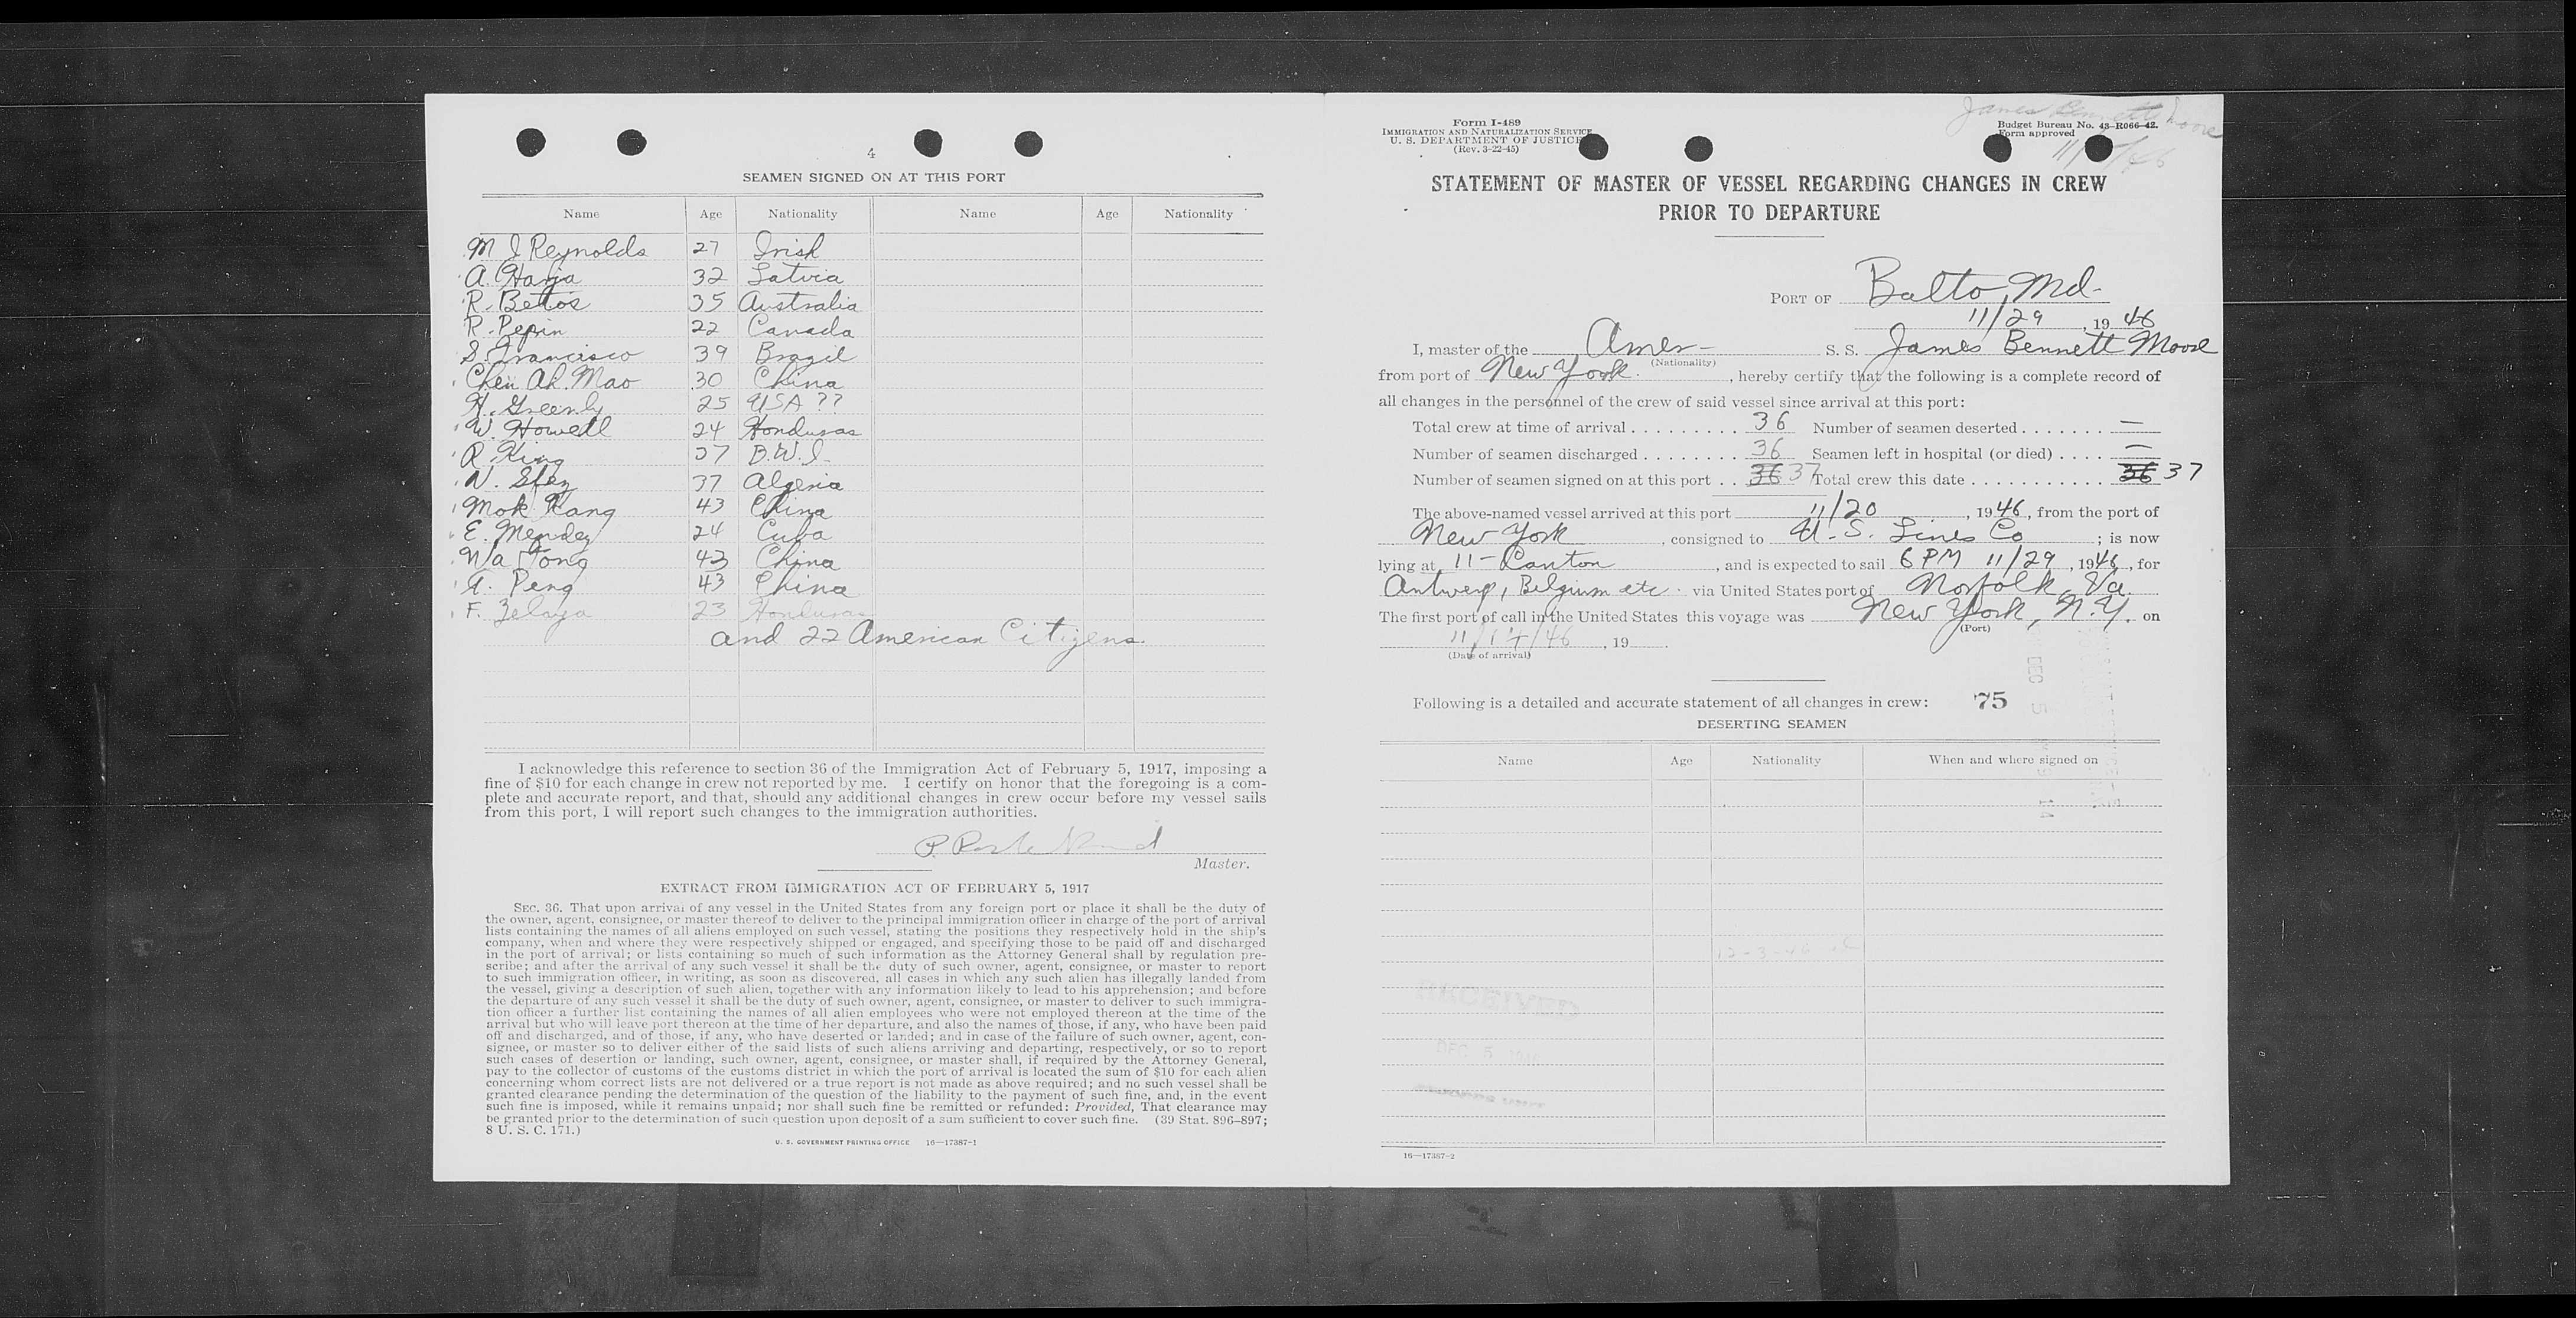 4
SEAMEN SIGNED ON AT THIS PORT
Name Age Nationality Name Age Nationality
M J Reynolds 27 Irish
A. Harja 32 Latvia
R. Betos 35 Australia
R. Pepin 22 Canada
S. Francisco 39 Brazil
Chen Ah. Mao 30 China
H. Greenly 25 USA ??
W. Howell 24 Honduras
R. King 37 B.W.I.
N. Sfez 37 Algeria
Mok Kang 43 China
E. Mendez 24 Cuba
Wa Tong 43 China
A. Peng 43 China
F. Zelaya 23 Honduras
and 22 American Citizens
I acknowledge this reference to section 36 of the Immigration Act of February 5, 1917, imposing a
fine of $10 for each change in crew not reported by me. I certify on honor that the foregoing is a com-
plete and accurate report, and that, should any additional changes in crew occur before my vessel sails
from this port, I will report such changes to the immigration authorities.
Master.
EXTRACT FROM IMMIGRATION ACT OF FEBRUARY 5, 1917
SEC. 36. That upon arrival of any vessel in the United States from any foreign port or place it shall be the duty of
the owner, agent, consignee, or master thereof to deliver to the principal immigration officer in charge of the port of arrival
lists containing the names of all aliens employed on such vessel, stating the positions they respectively hold in the ship's
company, when and where they were respectively shipped or engaged, and specifying those to be paid off and discharged
in the port of arrival; or lists containing so much of such information as the Attorney General shall by regulation pre-
scribe; and after the arrival of any such vessel it shall be the duty of such owner, agent, consignee, or master to report
to such immigration officer, in writing, as soon as discovered, all cases in which any such alien has illegally landed from
the vessel, giving a description of such alien, together with any information likely to lead to his apprehension; and before
the departure of any such vessel it shall be the duty of such owner, agent, consignee, or master to deliver to such immigra-
tion officer a further list containing the names of all alien employees who were not employed thereon at the time of the
arrival but who will leave port thereon at the time of her departure, and also the names of those, if any, who have been paid
off and discharged, and of those, if any, who have deserted or landed; and in case of the failure of such owner, agent, con-
signee, or master so to deliver either of the said lists of such aliens arriving and departing, respectively, or so to report
such cases of desertion or landing, such owner, agent, consignee, or master shall, if required by the Attorney General,
pay to the collector of customs of the customs district in which the port of arrival is located the sum of $10 for each alien
concerning whom correct lists are not delivered or a true report is not made as above required; and no such vessel shall be
granted clearance pending the determination of the question of the liability to the payment of such fine, and, in the event
such fine is imposed, while it remains unpaid; nor shall such fine be remitted or refunded: Provided, That clearance may
be granted prior to the determination of such question upon deposit of a sum sufficient to cover such fine. (39 Stat. 896-897;
8 U. S. C. 171.)
U. S. GOVERNMENT PRINTING OFFICE 16—17387-1
James Bennett Moore
Form I-489
IMMIGRATION AND NATURALIZATION SERVICE
U. S. DEPARTMENT OF JUSTICE
(Rev. 3-22-45)
Budget Bureau No. 43-R066-42.
Form approved
STATEMENT OF MASTER OF VESSEL REGARDING CHANGES IN CREW
PRIOR TO DEPARTURE
PORT OF Balto, Md.
11/29, 1946
I, master of the Amer- S. S. James Bennett Moore
(Nationality)
from port of New York, hereby certify that the following is a complete record of
all changes in the personnel of the crew of said vessel since arrival at this port:
Total crew at time of arrival . . . . . . . . . 36 Number of seamen deserted . . . . . . . —
Number of seamen discharged . . . . . . . . 36 Seamen left in hospital (or died) . . . . —
Number of seamen signed on at this port . . 36 37 Total crew this date . . . . . . . . . . . 36 37
The above-named vessel arrived at this port 11/20, 1946, from the port of
New York, consigned to U.S. Lines Co; is now
lying at 11 - Canton, and is expected to sail 6 PM 11/29, 1946, for
Antwerp, Belgium etc. via United States port of Norfolk, Va.
The first port of call in the United States this voyage was New York, N.Y. on
(Port)
11/14/46, 19 .
(Date of arrival)
Following is a detailed and accurate statement of all changes in crew: 75
DEC 5
DESERTING SEAMEN
Name Age Nationality When and where signed on
12-3-46
RECEIVED
DEC 5
16—17387-2